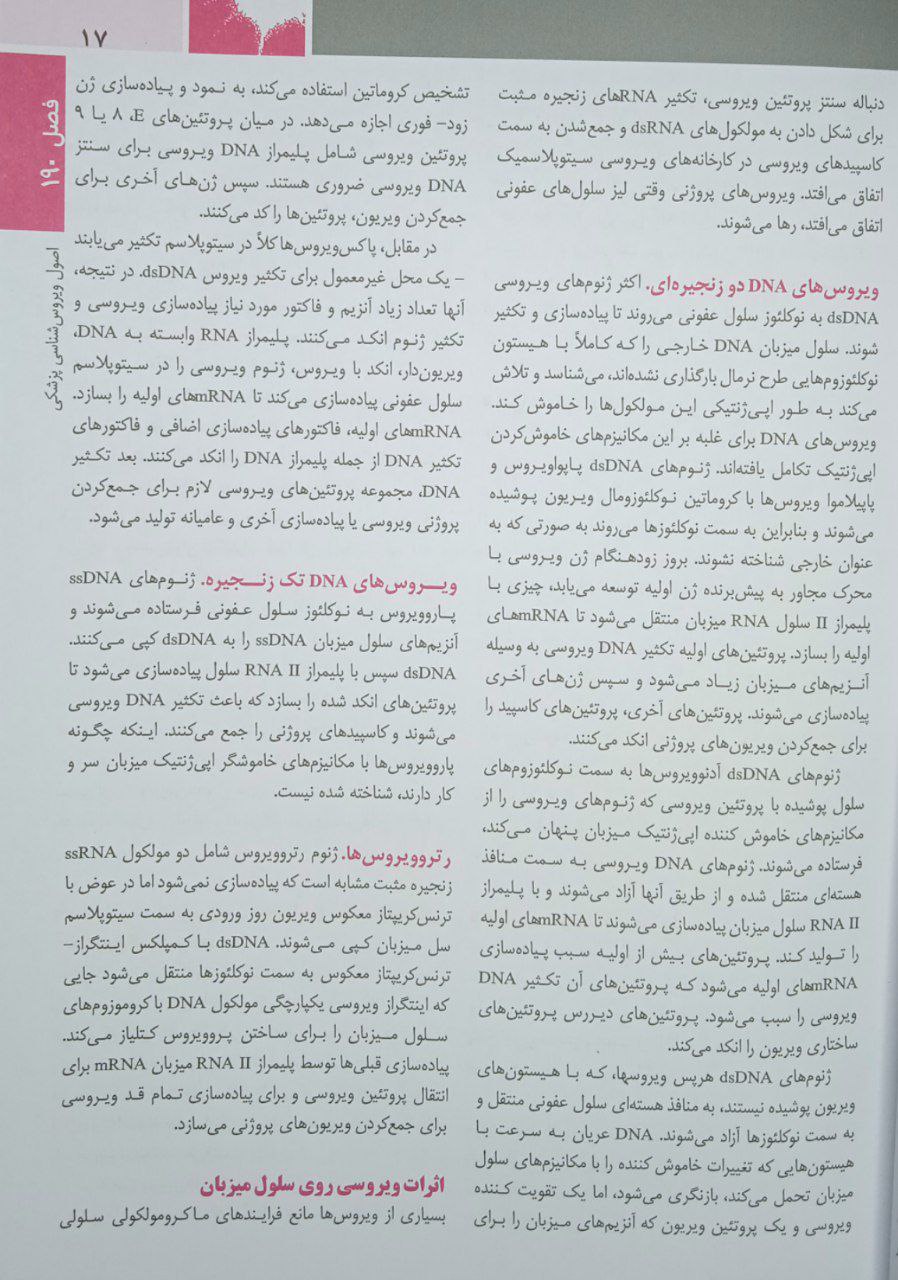 ۱۷
فصل ۱۹۰
اصول ویروس‌شناسی پزشکی
دنباله سنتز پروتئین ویروسی، تکثیر RNAهای زنجیره مثبت
برای شکل دادن به مولکول‌های dsRNA و جمع‌شدن به سمت
کاسپیدهای ویروسی در کارخانه‌های ویروسی سیتوپلاسمیک
اتفاق می‌افتد. ویروس‌های پروژنی وقتی لیز سلول‌های عفونی
اتفاق می‌افتد، رها می‌شوند.
ویروس‌های DNA دو زنجیره‌ای. اکثر ژنوم‌های ویروسی
dsDNA به نوکلئوز سلول عفونی می‌روند تا پیاده‌سازی و تکثیر
شوند. سلول میزبان DNA خارجی را که کاملاً با هیستون
نوکلئوزوم‌هایی طرح نرمال بارگذاری نشده‌اند، می‌شناسد و تلاش
می‌کند به طور اپی‌ژنتیکی این مولکول‌ها را خاموش کند.
ویروس‌های DNA برای غلبه بر این مکانیزم‌های خاموش‌کردن
اپی‌ژنتیک تکامل یافته‌اند. ژنوم‌های dsDNA پاپواویروس و
پاپیلاموا ویروس‌ها با کروماتین نوکلئوزومال ویریون پوشیده
می‌شوند و بنابراین به سمت نوکلئوزها می‌روند به صورتی که به
عنوان خارجی شناخته نشوند. بروز زودهنگام ژن ویروسی با
محرک مجاور به پیش‌برنده ژن اولیه توسعه می‌یابد، چیزی با
پلیمراز II سلول RNA میزبان منتقل می‌شود تا mRNAهای
اولیه را بسازد. پروتئین‌های اولیه تکثیر DNA ویروسی به وسیله
آنزیم‌های میزبان زیاد می‌شود و سپس ژن‌های آخری
پیاده‌سازی می‌شوند. پروتئین‌های آخری، پروتئین‌های کاسپید را
برای جمع‌کردن ویریون‌های پروژنی انکد می‌کنند.
ژنوم‌های dsDNA آدنوویروس‌ها به سمت نوکلئوزوم‌های
سلول پوشیده با پروتئین ویروسی که ژنوم‌های ویروسی را از
مکانیزم‌های خاموش کننده اپی‌ژنتیک میزبان پنهان می‌کند،
فرستاده می‌شوند. ژنوم‌های DNA ویروسی به سمت منافذ
هسته‌ای منتقل شده و از طریق آنها آزاد می‌شوند و با پلیمراز
RNA II سلول میزبان پیاده‌سازی می‌شوند تا mRNAهای اولیه
را تولید کند. پروتئین‌های بیش از اولیه سبب پیاده‌سازی
mRNAهای اولیه می‌شود که پروتئین‌های آن تکثیر DNA
ویروسی را سبب می‌شود. پروتئین‌های دیررس پروتئین‌های
ساختاری ویریون را انکد می‌کند.
ژنوم‌های dsDNA هرپس ویروسها، که با هیستون‌های
ویریون پوشیده نیستند، به منافذ هسته‌ای سلول عفونی منتقل و
به سمت نوکلئوزها آزاد می‌شوند. DNA عریان به سرعت با
هیستون‌هایی که تغییرات خاموش کننده را با مکانیزم‌های سلول
میزبان تحمل می‌کند، بازنگری می‌شود، اما یک تقویت کننده
ویروسی و یک پروتئین ویریون که آنزیم‌های میزبان را برای
تشخیص کروماتین استفاده می‌کند، به نمود و پیاده‌سازی ژن
زود– فوری اجازه می‌دهد. در میان پروتئین‌های E، ۸ یا ۹
پروتئین ویروسی شامل پلیمراز DNA ویروسی برای سنتز
DNA ویروسی ضروری هستند. سپس ژن‌های آخری برای
جمع‌کردن ویریون، پروتئین‌ها را کد می‌کنند.
در مقابل، پاکس‌ویروس‌ها کلاً در سیتوپلاسم تکثیر می‌یابند
– یک محل غیرمعمول برای تکثیر ویروس dsDNA. در نتیجه،
آنها تعداد زیاد آنزیم و فاکتور مورد نیاز پیاده‌سازی ویروسی و
تکثیر ژنوم انکد می‌کنند. پلیمراز RNA وابسته به DNA،
ویریون‌دار، انکد با ویروس، ژنوم ویروسی را در سیتوپلاسم
سلول عفونی پیاده‌سازی می‌کند تا mRNAهای اولیه را بسازد.
mRNAهای اولیه، فاکتورهای پیاده‌سازی اضافی و فاکتورهای
تکثیر DNA از جمله پلیمراز DNA را انکد می‌کنند. بعد تکثیر
DNA، مجموعه پروتئین‌های ویروسی لازم برای جمع‌کردن
پروژنی ویروسی یا پیاده‌سازی آخری و عامیانه تولید می‌شود.
ویروس‌های DNA تک زنجیره. ژنوم‌های ssDNA
پاروویروس به نوکلئوز سلول عفونی فرستاده می‌شوند و
آنزیم‌های سلول میزبان ssDNA را به dsDNA کپی می‌کنند.
dsDNA سپس با پلیمراز RNA II سلول پیاده‌سازی می‌شود تا
پروتئین‌های انکد شده را بسازد که باعث تکثیر DNA ویروسی
می‌شوند و کاسپیدهای پروژنی را جمع می‌کنند. اینکه چگونه
پاروویروس‌ها با مکانیزم‌های خاموشگر اپی‌ژنتیک میزبان سر و
کار دارند، شناخته شده نیست.
رتروویروس‌ها. ژنوم رتروویروس شامل دو مولکول ssRNA
زنجیره مثبت مشابه است که پیاده‌سازی نمی‌شود اما در عوض با
ترنس‌کریپتاز معکوس ویریون روز ورودی به سمت سیتوپلاسم
سل میزبان کپی می‌شوند. dsDNA با کمپلکس اینتگراز–
ترنس‌کریپتاز معکوس به سمت نوکلئوزها منتقل می‌شود جایی
که اینتگراز ویروسی یکپارچگی مولکول DNA با کروموزوم‌های
سلول میزبان را برای ساختن پروویروس کتلیاز می‌کند.
پیاده‌سازی قبلی‌ها توسط پلیمراز RNA II میزبان mRNA برای
انتقال پروتئین ویروسی و برای پیاده‌سازی تمام قد ویروسی
برای جمع‌کردن ویریون‌های پروژنی می‌سازد.
اثرات ویروسی روی سلول میزبان
بسیاری از ویروس‌ها مانع فرایندهای ماکرومولکولی سلولی